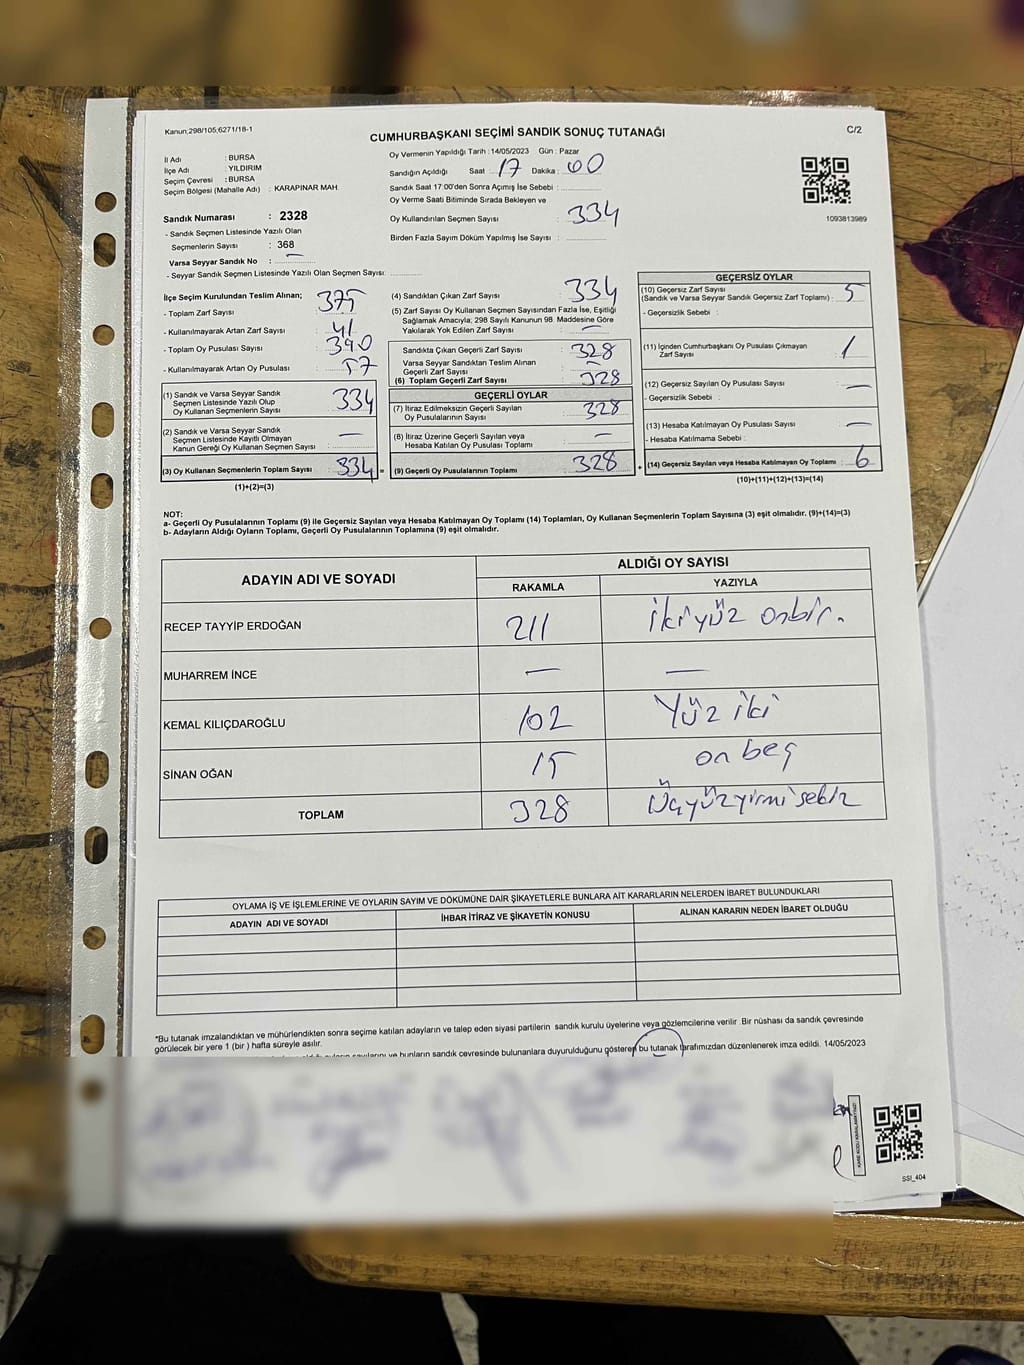 Kanun;298/105;6271/18-1
CUMHURBAŞKANI SEÇİMİ SANDIK SONUÇ TUTANAĞI
C/2
İl Adı : BURSA
İlçe Adı : YILDIRIM
Seçim Çevresi : BURSA
Seçim Bölgesi (Mahalle Adı) : KARAPINAR MAH.
Oy Vermenin Yapıldığı Tarih :14/05/2023 Gün : Pazar
Sandığın Açıldığı Saat : 17 Dakika : 00
Sandık Saat 17:00'den Sonra Açımış İse Sebebi :
Oy Verme Saati Bitiminde Sırada Bekleyen ve
Oy Kullandırılan Seçmen Sayısı : 334
Birden Fazla Sayım Döküm Yapılmış İse Sayısı :
1093813989
Sandık Numarası : 2328
- Sandık Seçmen Listesinde Yazılı Olan
Seçmenlerin Sayısı : 368
Varsa Seyyar Sandık No : —
- Seyyar Sandık Seçmen Listesinde Yazılı Olan Seçmen Sayısı:
İlçe Seçim Kurulundan Teslim Alınan;
- Toplam Zarf Sayısı : 375
- Kullanılmayarak Artan Zarf Sayısı : 41
- Toplam Oy Pusulası Sayısı : 390
- Kullanılmayarak Artan Oy Pusulası : 57
(1) Sandık ve Varsa Seyyar Sandık
Seçmen Listesinde Yazılı Olup
Oy Kullanan Seçmenlerin Sayısı : 334
(2) Sandık ve Varsa Seyyar Sandık
Seçmen Listesinde Kayıtlı Olmayan
Kanun Gereği Oy Kullanan Seçmen Sayısı : —
(3) Oy Kullanan Seçmenlerin Toplam Sayısı : 334 =
(1)+(2)=(3)
(4) Sandıktan Çıkan Zarf Sayısı : 334
(5) Zarf Sayısı Oy Kullanan Seçmen Sayısından Fazla İse, Eşitliği
Sağlamak Amacıyla; 298 Sayılı Kanunun 98. Maddesine Göre
Yakılarak Yok Edilen Zarf Sayısı : —
Sandıkta Çıkan Geçerli Zarf Sayısı : 328
Varsa Seyyar Sandıktan Teslim Alınan
Geçerli Zarf Sayısı : —
(6) Toplam Geçerli Zarf Sayısı : 328
GEÇERLİ OYLAR
(7) İtiraz Edilmeksizin Geçerli Sayılan
Oy Pusulalarının Sayısı : 328
(8) İtiraz Üzerine Geçerli Sayılan veya
Hesaba Katılan Oy Pusulası Toplamı : —
(9) Geçerli Oy Pusulalarının Toplamı : 328 +
GEÇERSİZ OYLAR
(10) Geçersiz Zarf Sayısı
(Sandık ve Varsa Seyyar Sandık Geçersiz Zarf Toplamı) : 5
- Geçersizlik Sebebi :
(11) İçinden Cumhurbaşkanı Oy Pusulası Çıkmayan
Zarf Sayısı : 1
(12) Geçersiz Sayılan Oy Pusulası Sayısı : —
- Geçersizlik Sebebi :
(13) Hesaba Katılmayan Oy Pusulası Sayısı : —
- Hesaba Katılmama Sebebi :
(14) Geçersiz Sayılan veya Hesaba Katılmayan Oy Toplamı : 6
(10)+(11)+(12)+(13)=(14)
NOT:
a- Geçerli Oy Pusulalarının Toplamı (9) ile Geçersiz Sayılan veya Hesaba Katılmayan Oy Toplamı (14) Toplamları, Oy Kullanan Seçmenlerin Toplam Sayısına (3) eşit olmalıdır. (9)+(14)=(3)
b- Adayların Aldığı Oyların Toplamı, Geçerli Oy Pusulalarının Toplamına (9) eşit olmalıdır.
ADAYIN ADI VE SOYADI
ALDIĞI OY SAYISI
RAKAMLA YAZIYLA
RECEP TAYYİP ERDOĞAN 211 İkiyüz onbir.
MUHARREM İNCE — —
KEMAL KILIÇDAROĞLU 102 Yüz iki
SİNAN OĞAN 15 on beş
TOPLAM 328 Üçyüzyirmisekiz
OYLAMA İŞ VE İŞLEMLERİNE VE OYLARIN SAYIM VE DÖKÜMÜNE DAİR ŞİKAYETLERLE BUNLARA AİT KARARLARIN NELERDEN İBARET BULUNDUKLARI
ADAYIN ADI VE SOYADI İHBAR İTİRAZ VE ŞİKAYETİN KONUSU ALINAN KARARIN NEDEN İBARET OLDUĞU
*Bu tutanak imzalandıktan ve mühürlendikten sonra seçime katılan adayların ve talep eden siyasi partilerin sandık kurulu üyelerine veya gözlemcilerine verilir .Bir nüshası da sandık çevresinde
görülecek bir yere 1 (bir ) hafta süreyle asılır.
ve bunların sandık çevresinde bulunanlara duyurulduğunu gösteren bu tutanak tarafımızdan düzenlenerek imza edildi. 14/05/2023
SSI_404